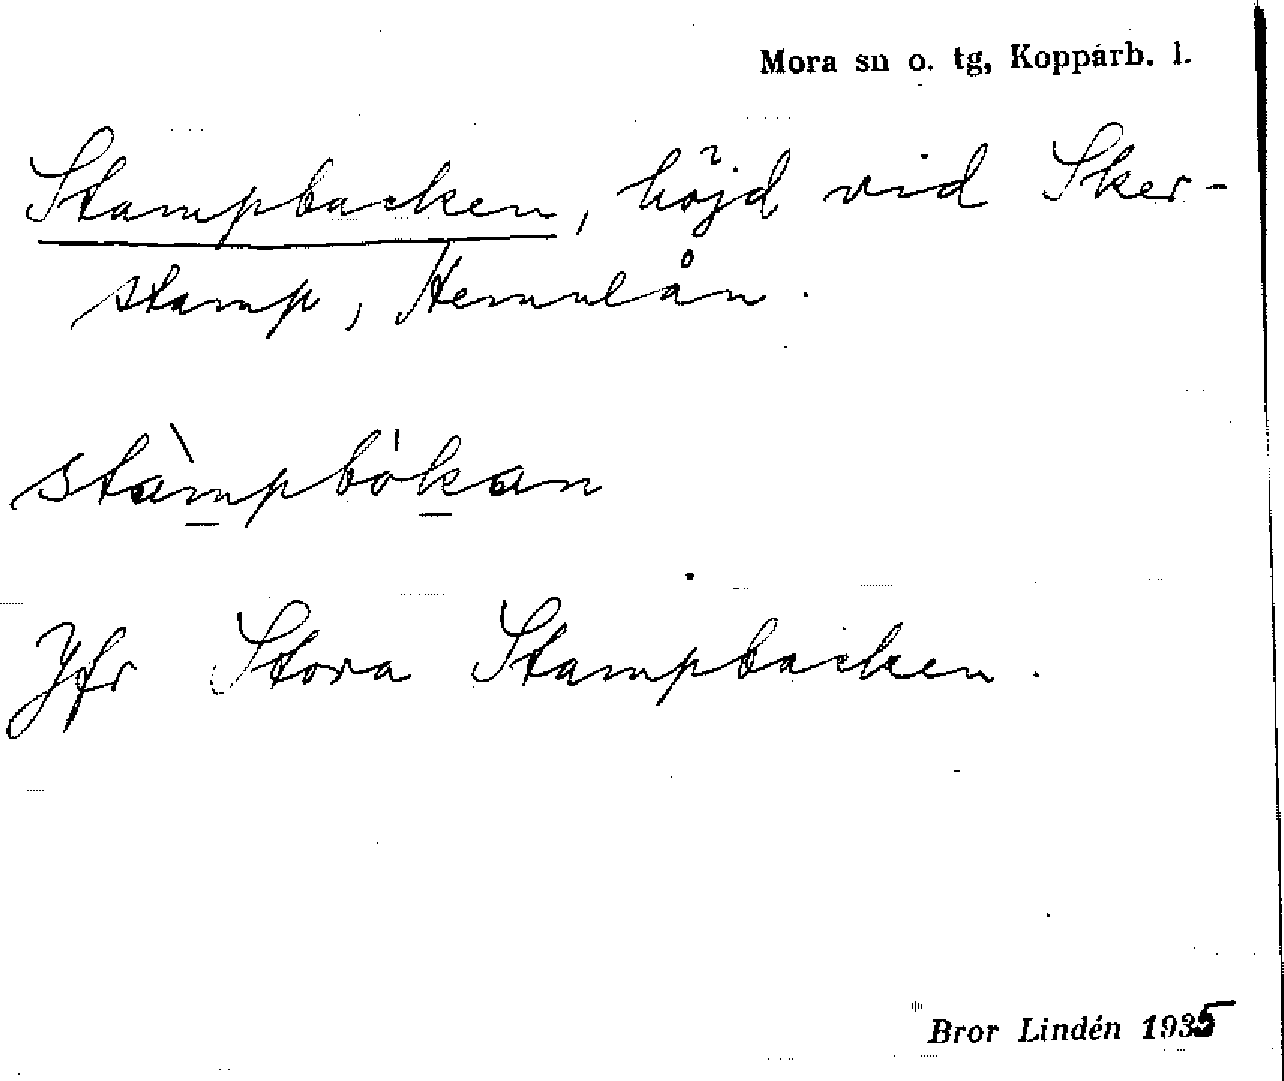 Mora sn o. tg, Kopparb. l.
Stampbacken, höjd vid Sker-
stamp, Hemulån.
stàmpbókan
Jfr Stora Stampbacken.
Bror Lindén 1935